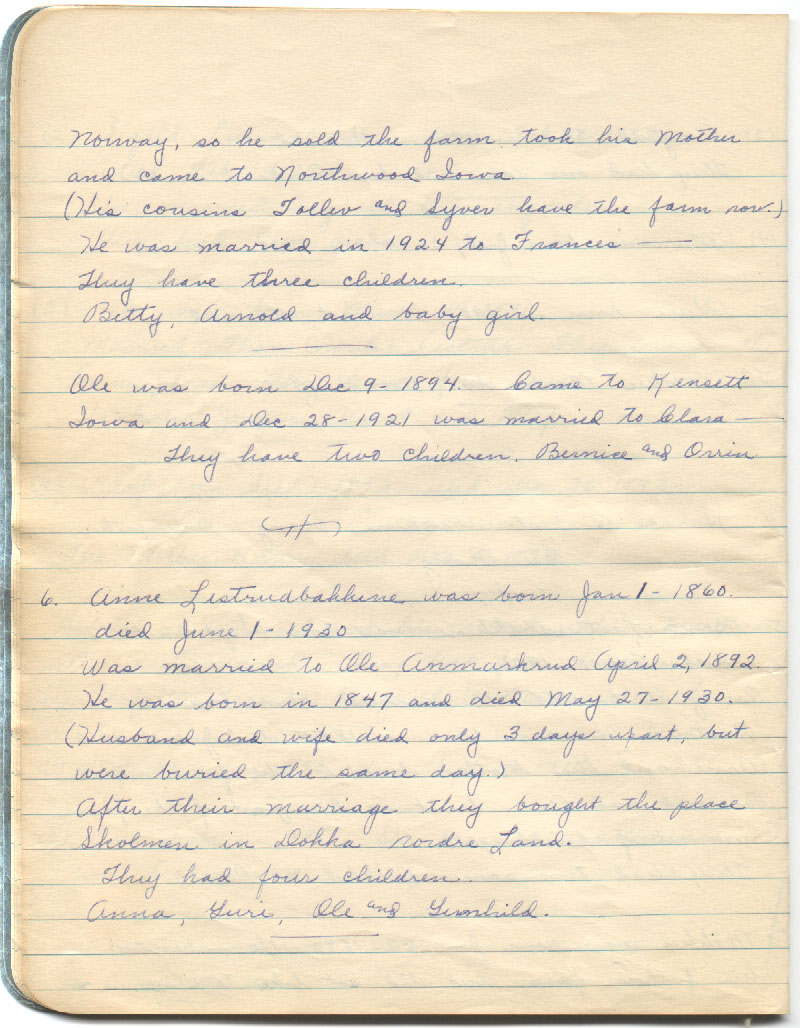 Norway, so he sold the farm took his Mother
and came to Northwood Iowa
(His cousins Tollev and Syver have the farm now.)
He was married in 1924 to Frances —
They have three children.
Betty, Arnold and baby girl.
Ole was born Dec 9 - 1894. Came to Kensett
Iowa and Dec 28 - 1921 was married to Clara —
They have two children. Bernice and Orrin
6. Anne Listrudbakkene was born Jan 1 - 1860.
died June 1 - 1930
Was married to Ole Anmarkrud April 2, 1892.
He was born in 1847 and died May 27 - 1930.
(Husband and wife died only 3 days apart, but
were buried the same day.)
After their marriage they bought the place
Skolmen in Dokka nordre Land.
They had four children.
Anna, Guri, Ole and Gunhild.